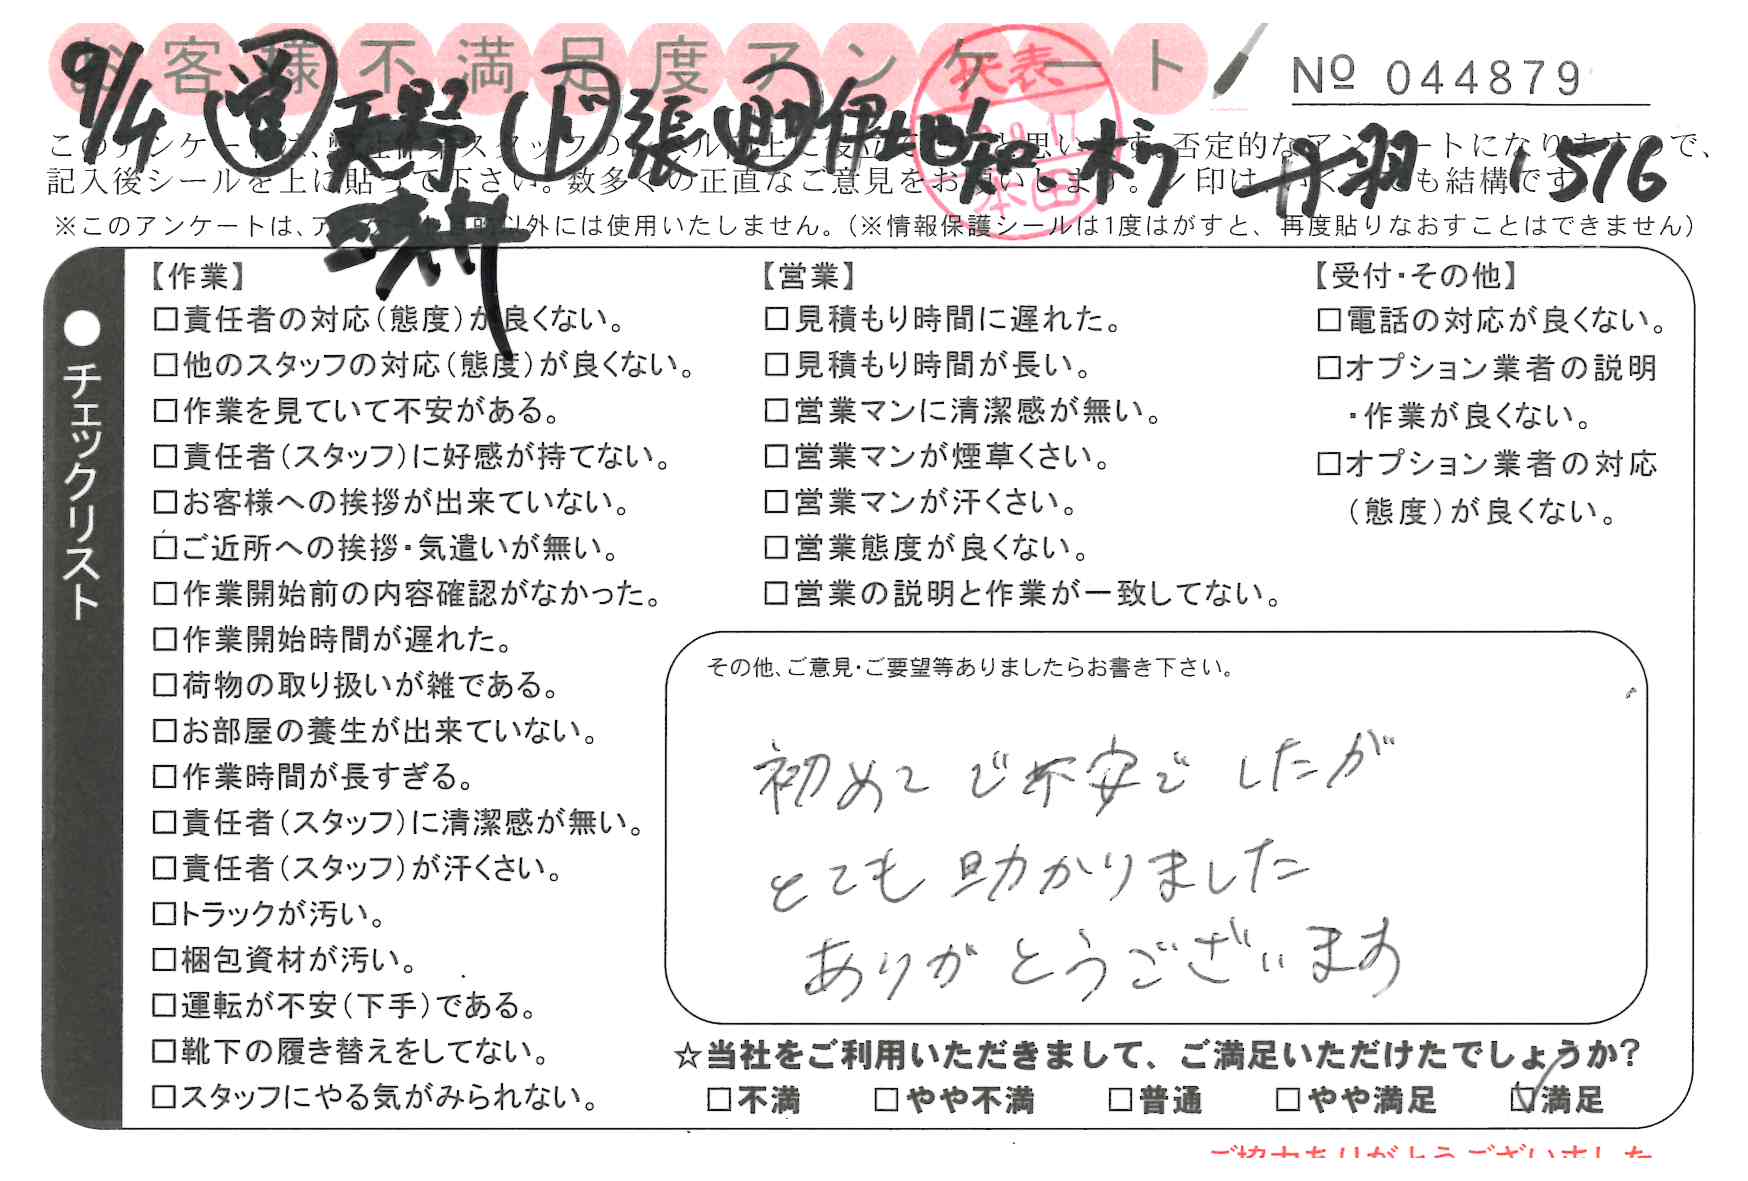 お客様不満足度アンケート
№ 044879
9/4 営 天野 ド 張 助 伊地知 丹羽 1516
代表
本田
記入後シールを上に貼って下さい。数多くの正直なご意見をお願いします。レ印はいくつでも結構です。
※このアンケートは、
以外には使用いたしません。(※情報保護シールは1度はがすと、再度貼りなおすことはできません)
●チェックリスト
【作業】
□責任者の対応(態度)が良くない。
□他のスタッフの対応(態度)が良くない。
□作業を見ていて不安がある。
□責任者(スタッフ)に好感が持てない。
□お客様への挨拶が出来ていない。
□ご近所への挨拶・気遣いが無い。
□作業開始前の内容確認がなかった。
□作業開始時間が遅れた。
□荷物の取り扱いが雑である。
□お部屋の養生が出来ていない。
□作業時間が長すぎる。
□責任者(スタッフ)に清潔感が無い。
□責任者(スタッフ)が汗くさい。
□トラックが汚い。
□梱包資材が汚い。
□運転が不安(下手)である。
□靴下の履き替えをしてない。
□スタッフにやる気がみられない。
【営業】
□見積もり時間に遅れた。
□見積もり時間が長い。
□営業マンに清潔感が無い。
□営業マンが煙草くさい。
□営業マンが汗くさい。
□営業態度が良くない。
□営業の説明と作業が一致してない。
【受付・その他】
□電話の対応が良くない。
□オプション業者の説明
・作業が良くない。
□オプション業者の対応
(態度)が良くない。
その他、ご意見・ご要望等ありましたらお書き下さい。
初めてで不安でしたが
とても助かりました
ありがとうございます
☆当社をご利用いただきまして、ご満足いただけたでしょうか?
□不満 □やや不満 □普通 □やや満足 ☑満足
ご協力ありがとうございました